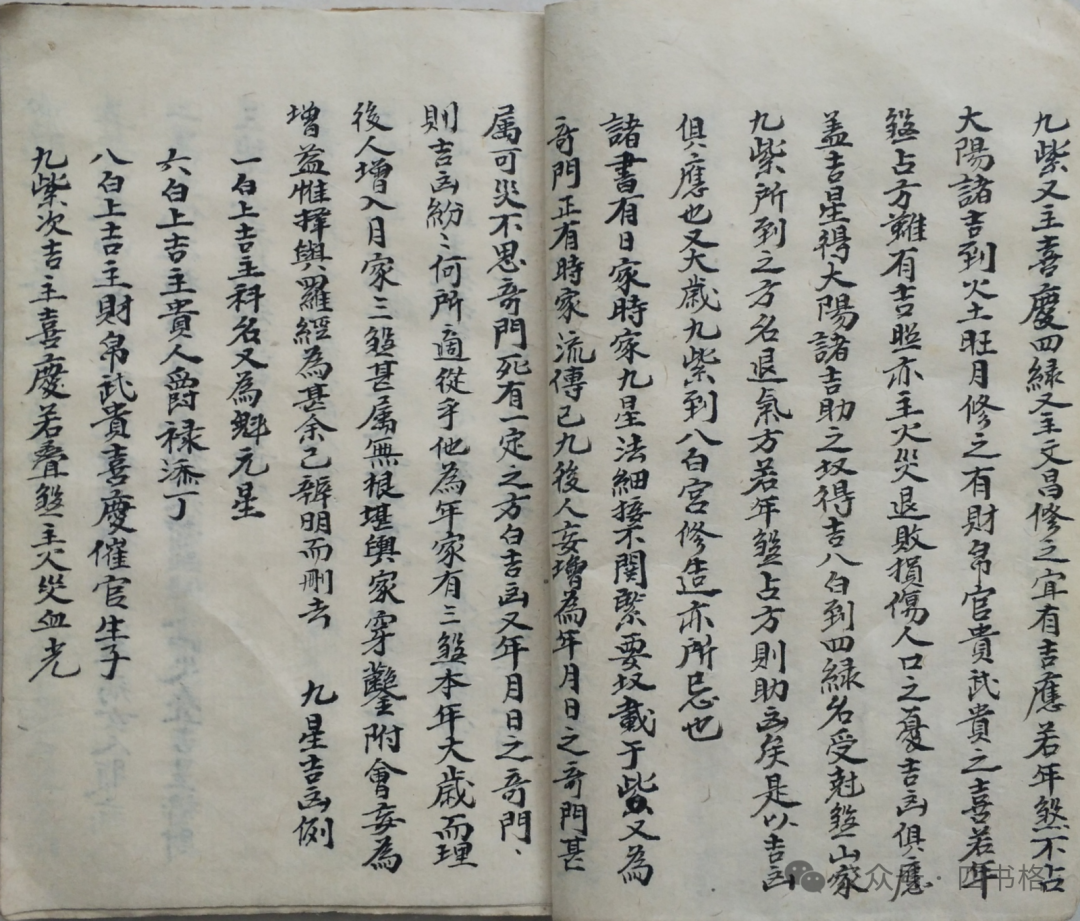 九紫又主喜慶四緑又主文昌修之宜有吉應若年煞不占
大陽諸吉到火土旺月修之有財帛官貴武貴之喜若年
煞占方難有吉照亦主火災退敗損傷人口之憂吉凶俱應
盖吉星得大陽諸吉助之故得吉八白到四緑名受尅煞山家
九紫所到之方名退氣方若年煞占方則助凶矣是以吉凶
俱應也又大歲九紫到八白宮修造亦所忌也
諸書有日家時家九星法細按不関緊要故載于此又為
竒門正有時家流傳已九後人妄增為年月日之竒門甚
属可災不思竒門死有一定之方白吉凶又年月日之竒門、
則吉凶紛〻何所適從乎他為年家有三煞本年大歲而理
後人增入月家三煞甚属無根堪輿家穿鑿附會妄為
增益惟擇與羅經為甚余已辨明而删去　九星吉凶例
一白上吉主科名又為魁元星
六白上吉主貴人爵禄添丁
八白上吉主財帛武貴喜慶催官生子
九紫次吉主喜慶若叠煞主火災血光
众号·四书格